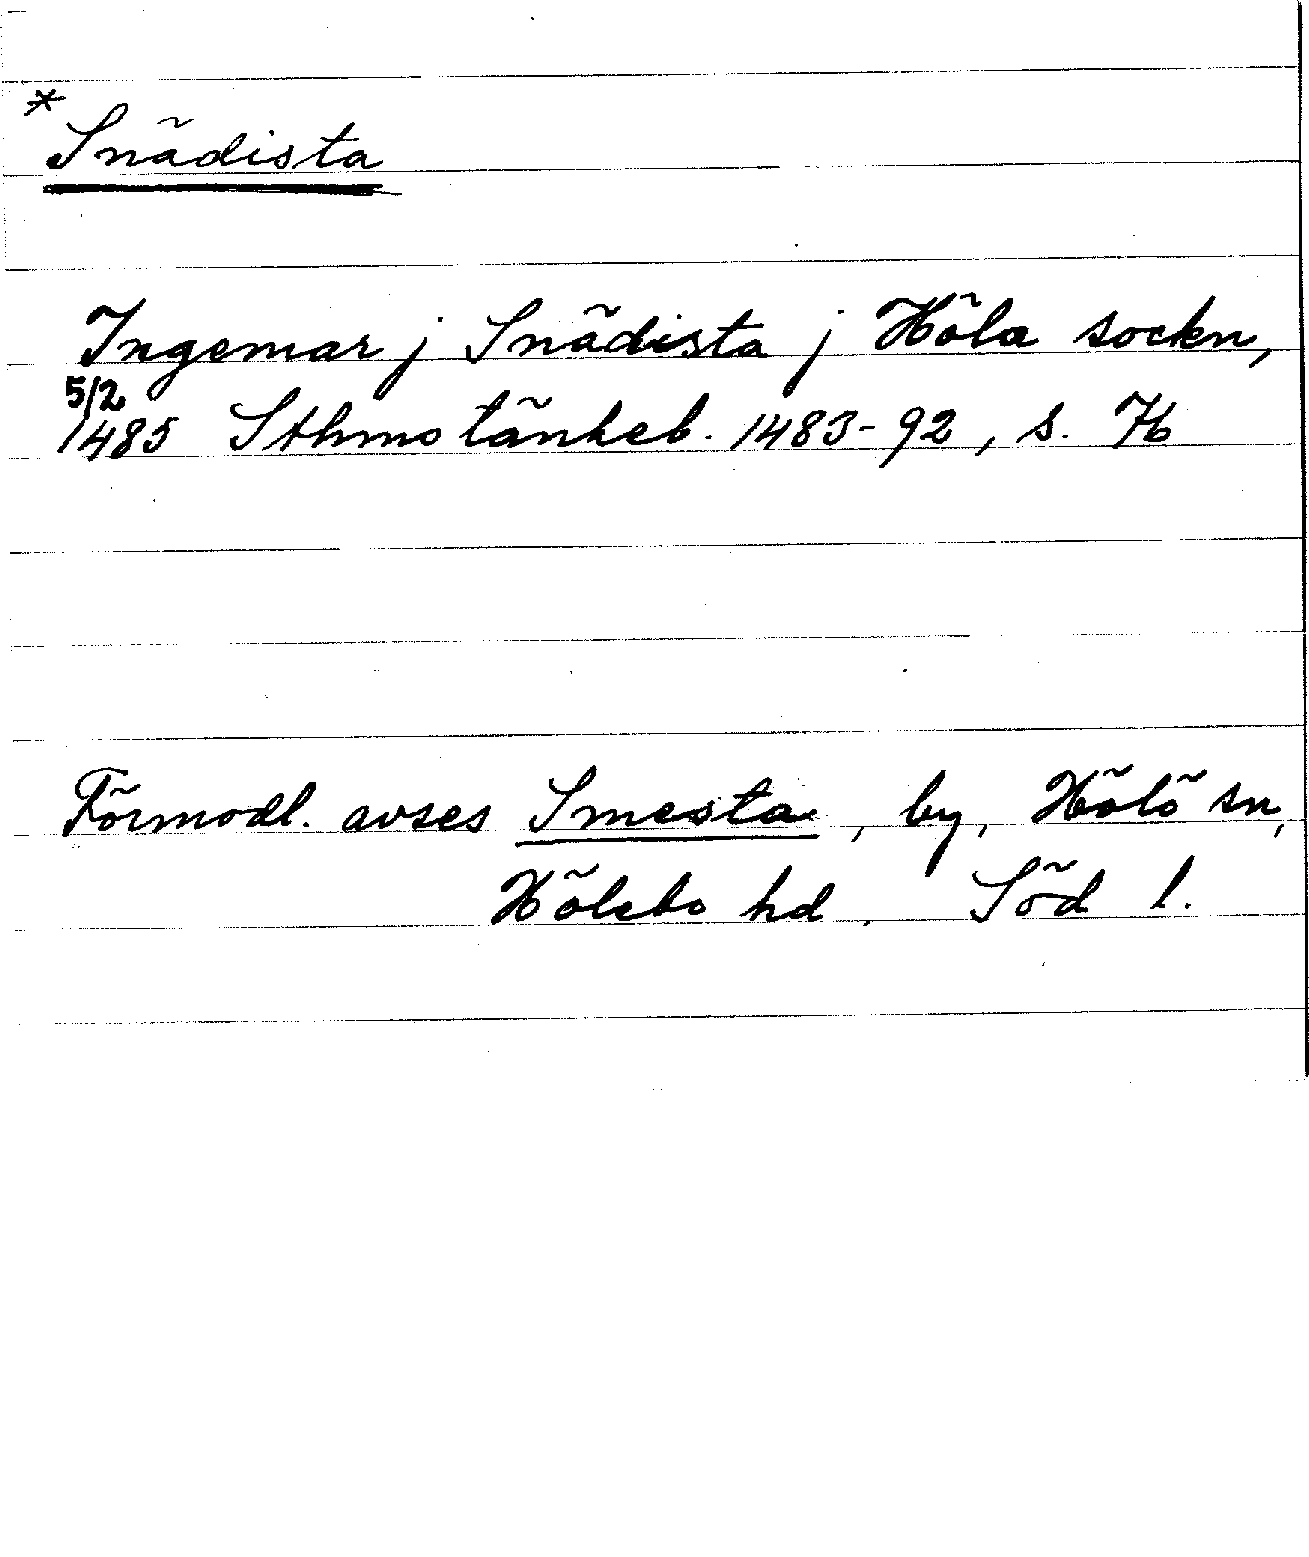 * Snädista
Ingemar j Snädista j Höla sockn,
5/2
1485 Sthms tänkeb. 1483-92, s. 76
Förmodl. avses Smesta, by, Hölö sn,
Hölebo hd, Söd l.